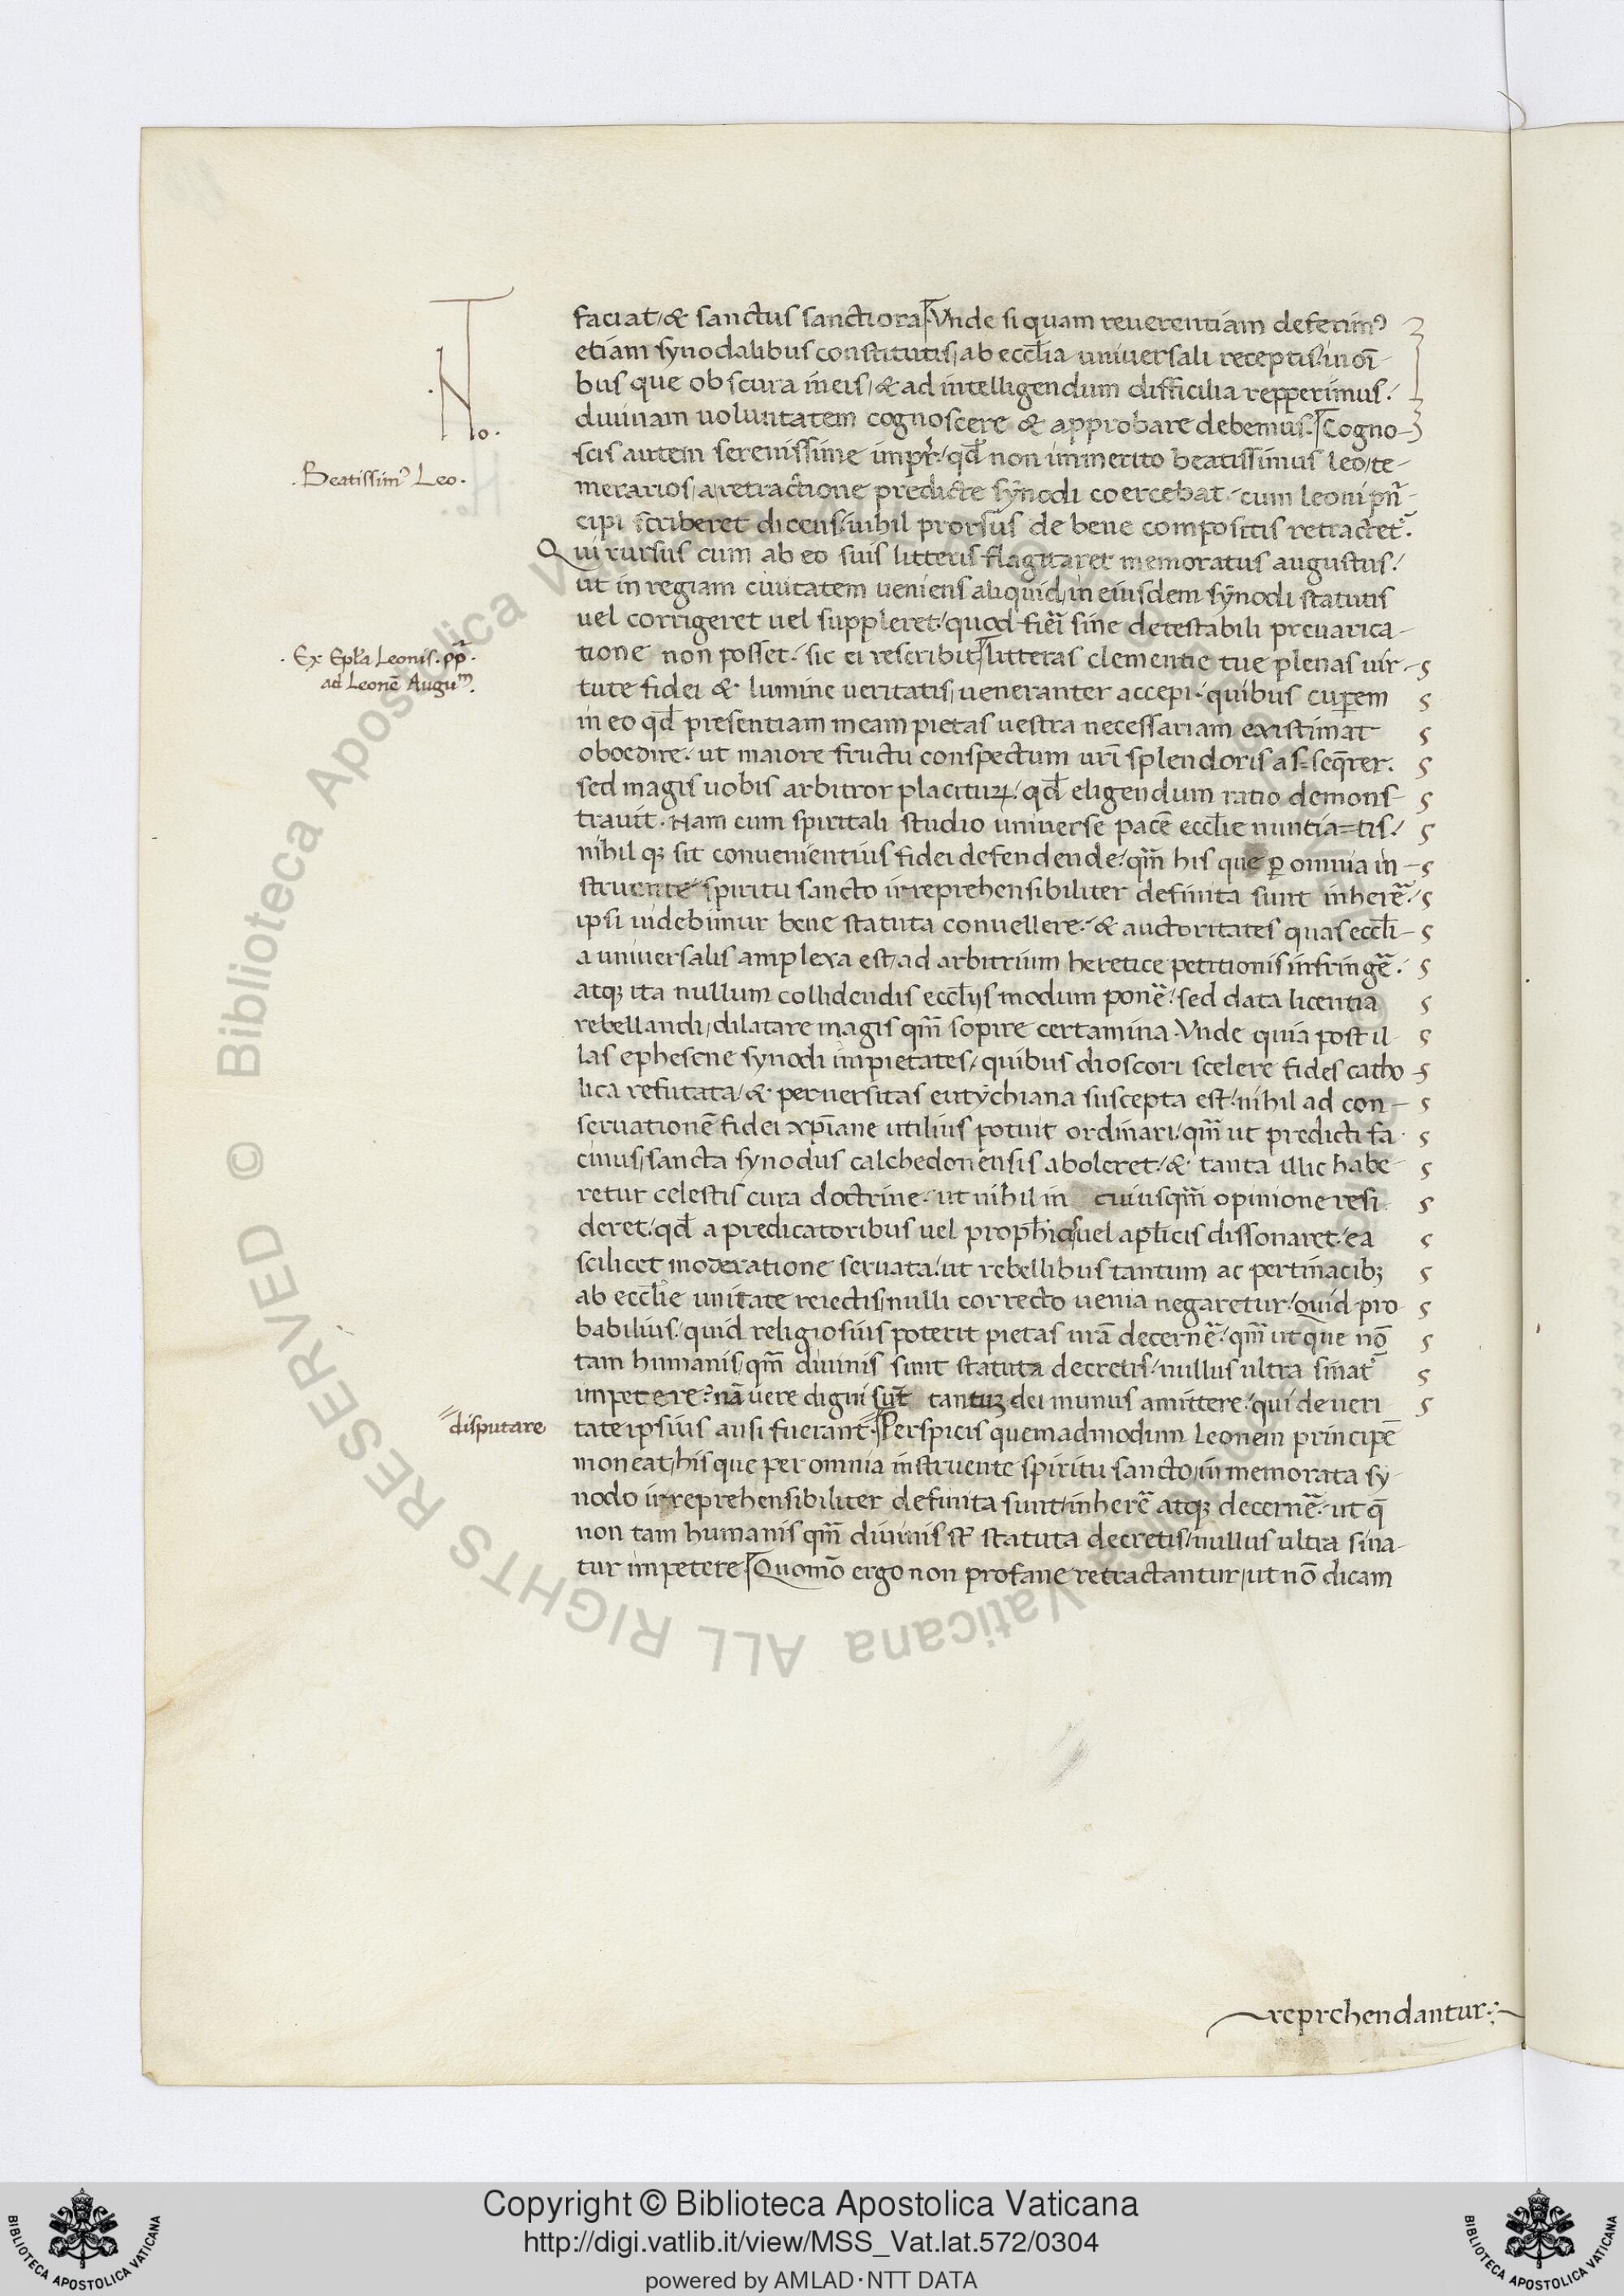 faciat, & sanctus sanctiora. Vnde si quam reuerentiam deferimꝰ
etiam synodalibus constitutis, ab eccl̄ia uniuersali receptis. in oı̄-
bus que obscura in eis, & ad intelligendum difficilia repperimus.
diuinam uoluntatem cognoscere & approbare debemus. Cogno-
scis autem serenissime imꝑr̃. qđ non immerito beatissimus leo, te-
merarios, a retractione predicte synodi coercebat. cum leoni pn̄-
cipi scriberet dicens, nihil prorsus de bene compositis retractet̃.
Qui rursus cum ab eo suis litteris flagitaret memoratus augustus.
ut in regiam ciuitatem ueniens aliquid, in eiusdem synodi statutis
uel corrigeret uel suppleret. quod fieri sine detestabili preuarica-
tione non posset. sic ei rescribit. Litteras clementie tue plenas uir-
tute fidei & lumine ueritatis, ueneranter accepi. quibus cuperem
in eo qđ presentiam meam pietas uestra necessariam existimat
oboedire. ut maiore fructu conspectum ur̄i splendoris as=seq̄rer.
sed magis uobis arbitror placituꝝ. qđ eligendum ratio demons-
trauit. Nam cum spiritali studio uniuerse pacē eccl̄ie nuntia=tis.
nihil qꝫ sit conuenientius fidei defendende. qm̄ his que ꝑ omnia in-
struente spiritu sancto irreprehensibiliter definita sunt inherẽ.
ipsi uidebimur bene statuta conuellere. & auctoritates quas eccl̄i-
a uniuersalis amplexa est, ad arbitrium heretice petitionis infringẽ.
atqꝫ ita nullum collidendis eccl̄ijs modum ponẽ. sed data licentia
rebellandi, dilatare magis qm̄ sopire certamina. Vnde quia post il-
las ephesene synodi impietates, quibus dioscori scelere fides catho-
lica refutata, & peruersitas eutychiana suscepta est. nihil ad con-
seruationē fidei xp̄iane utilius potuit ordinari. qm̄ ut predicti fa-
cinus, sancta synodus calchedonensis aboleret. & tanta illic habe-
retur celestis cura doctrine. ut nihil in cuiusqm̄ opinione resi-
deret. qđ a predicatoribus uel proph̄icis, uel apl̄icis dissonaret. ea
scilicet moderatione seruata. ut rebellibus tantum ac pertinacibꝫ
ab eccl̄ie unitate reiectis, nulli correcto uenia negaretur. Quid pro-
babilius. quid religiosius poterit pietas ur̄a decernẽ. qm̄ ut que nō
tam humanis, qm̄ diuinis sunt statuta decretis. nullus ultra sinat̃
impetere? nā uere digni sūt tantuꝫ dei munus amittere. qui de ueri
tate ipsius ausi fuerant. Perspicis quemadmodum Leonem principē
moneat, his que per omnia instruente spiritu sancto, in memorata sy-
nodo irreprehensibiliter definita sunt, inherẽ atqꝫ decernẽ. ut q̄
non tam humanis qm̄ diuinis st̃ statuta decretis, nullus ultra sina-
tur impetere. Quomō ergo non profane retractantur, ut nō dicam
reprehendantur
No.
. Beatissimꝰ Leo.
. Ex Epl̄a Leonis. pp̄.
ad Leonē Auguᵐ.
disputare
© Biblioteca Apostolica Vaticana ALL RIGHTS RESERVED
Copyright © Biblioteca Apostolica Vaticana
http://digi.vatlib.it/view/MSS_Vat.lat.572/0304
powered by AMLAD·NTT DATA
BIBLIOTECA APOSTOLICA VATICANA
BIBLIOTECA APOSTOLICA VATICANA